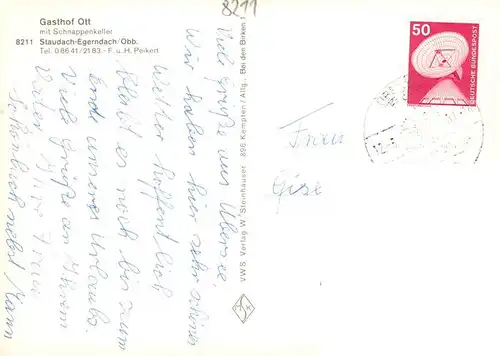 8211
Gasthof Ott
mit Schnappenkeller
8211 Staudach-Egerndach/Obb.
Tel. 0 86 41/21 83 - F. u. H. Peikert
Viele Grüße aus Übersee.
Wir haben hier sehr schönes
Wetter hoffentlich
bleibt es noch bis zum
Ende unseres Urlaubs.
Viele Grüße an Ihrem
Vater Ihre Frau
nebst Mann
VWS Verlag W. Steinhauser · 896 Kempten/Allg. · Bei den Birken 1
50
DEUTSCHE BUNDESPOST
Frau
Gise